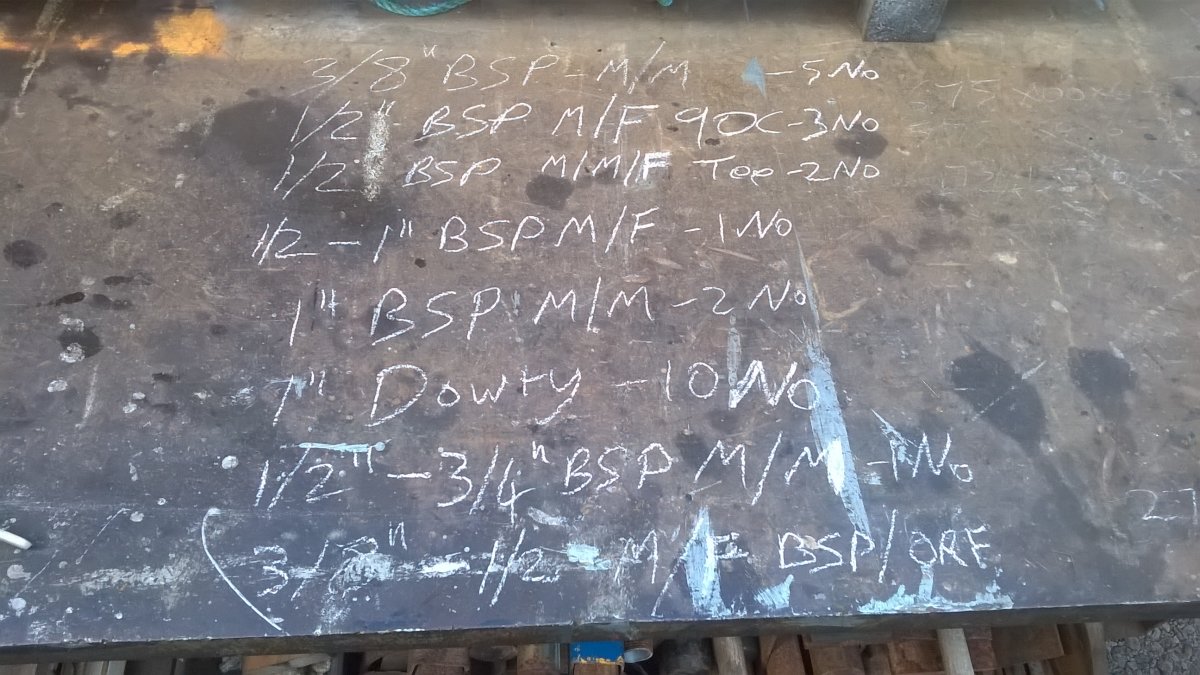 3/8" BSP - M/M - 5 No
1/2" BSP M/F 90C - 3 No
1/2" BSP M/M/F Tee - 2 No
1/2 - 1" BSP M/F - 1 No
1" BSP M/M - 2 No
1" Dowty - 10 No
1/2" - 3/4" BSP M/M - 1 No
3/8" - 1/2 - M/F BSP/ORF
27